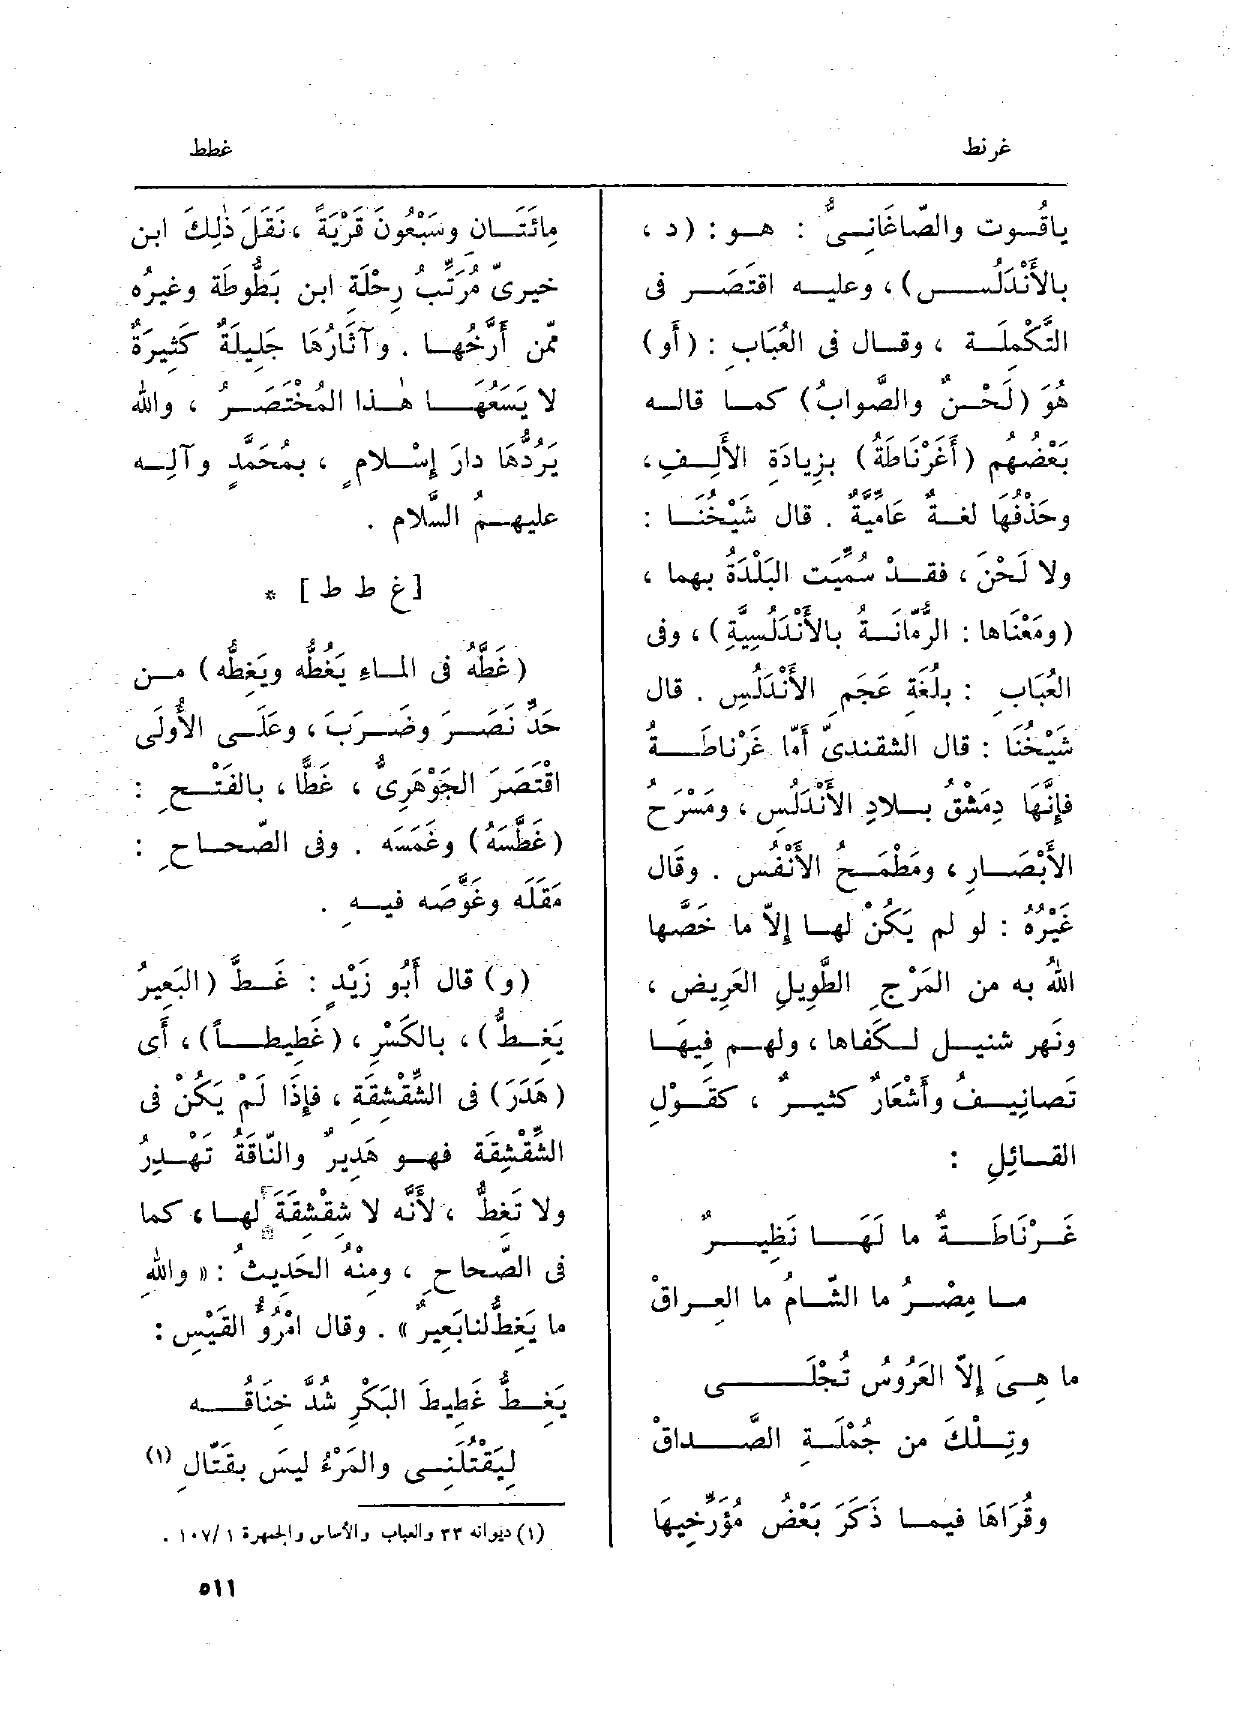 غرنط
غطط
ياقُوت والصّاغَانِىُّ : هو : (د ،
بالأَنْدَلُس) ، وعليه اقتَصَر فى
التَّكْمِلَة ، وقال فى العُبَابِ : (أو)
هُوَ (لَحْنٌ والصَّوابُ) كما قاله
بَعْضُهُم (أَغَرْنَاطَةُ) بزِيادَةِ الأَلِفِ ،
وحَذْفُهَا لغةٌ عَامِّيَّةٌ . قال شَيْخُنَا :
ولا لَحْنَ ، فقدْ سُمِّيَت البَلْدَةُ بهما ،
(ومَعْنَاها : الرُّمّانَةُ بالأَنْدَلُسِيَّةِ) ، وفى
العُبَابِ : بلُغَةِ عَجَمِ الأَنْدَلُسِ . قال
شَيْخُنَا : قال الشقندىّ أَمّا غَرْناطَةُ
فإنَّهَا دِمَشْقُ بلادِ الأَنْدَلُسِ ، ومَسْرَحُ
الأَبْصَارِ ، ومَطْمَحُ الأَنْفُسِ . وقَال
غَيْرُهُ : لو لم يَكُنْ لها إلاّ ما خَصَّها
اللهُ به من المَرْجِ الطَّوِيلِ العَرِيض ،
ونَهر شنيل لكَفاها ، ولهم فِيهَا
تَصانِيفُ وأَشْعَارٌ كثيرٌ ، كقَوْلِ
القائِلِ :
غَرْنَاطَةٌ ما لَهَا نَظِيرٌ
ما مِصْرُ ما الشّامُ ما العِراقْ
ما هِىَ إلاّ العَرُوسُ تُجْلَى
وتِلْكَ من جُمْلَةِ الصَّداقْ
وقُرَاهَا فيما ذَكَرَ بَعْضُ مُؤَرِّخِيهَا
مِائتَان وسَبْعُونَ قَرْيَةً ، نَقَلَ ذٰلِكَ ابن
خيرىّ مُرَتِّبُ رِحْلَةِ ابن بَطُّوطَة وغيرُه
مِمّن أَرَّخَها . وآثَارُهَا جَلِيلَةٌ كَثِيرَةٌ
لا يَسَعُهَا هٰذا المُخْتَصَرُ ، والله
يَرُدُّهَا دارَ إِسْلامٍ ، بمُحَمَّدٍ وآلِه
عليهمُ السَّلام .
[غ ط ط] *
(غَطَّهُ فى الماءِ يَغُطُّه ويَغِطُّه) من
حَدِّ نَصَرَ وضَرَبَ ، وعَلَى الأُولَى
اقْتَصَرَ الجَوْهَرِىُّ ، غَطًّا ، بالفَتْحِ :
(غَطَّسَهُ) وغَمَسَه . وفى الصّحاحِ :
مَقَلَه وغَوَّصَه فيهِ .
(و) قال أَبُو زَيْدٍ : غَطَّ (البَعِيرُ
يَغِطُّ) ، بالكَسْرِ ، (غَطِيطاً) ، أَى
(هَدَرَ) فى الشِّقْشِقَةِ ، فإِذَا لَمْ يَكُنْ فى
الشِّقْشِقَة فهو هَدِيرٌ والنّاقَةُ تَهْدِرُ
ولا تَغِطُّ ، لأَنَّه لا شِقْشِقَةَ لها ، كما
فى الصّحاحِ ، ومِنْهُ الحَدِيثُ : « واللهِ
ما يَغِطُّ لنا بَعِيرٌ » . وقال امْرُؤُ القَيْسِ :
يَغِطُّ غَطِيطَ البَكْرِ شُدَّ خِنَاقُه
لِيَقْتُلَنِى والمَرْءُ ليسَ بقَتّالِ (١)
(١) ديوانه ٣٣ والعباب والأساس والجمهرة ١٠٧/١ .
٥١١